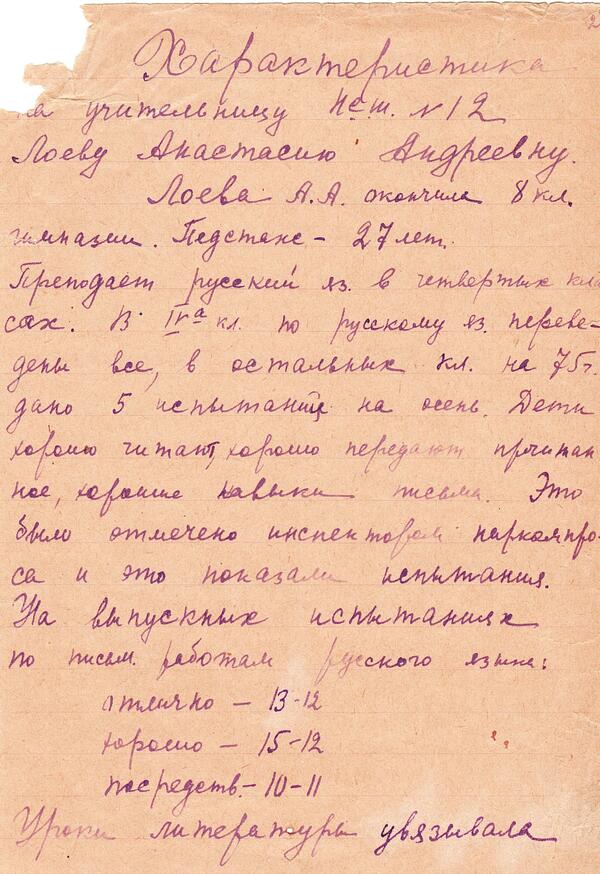 2
Характеристика
на учительницу Нсш. №12
Лоеву Анастасию Андреевну.
Лоева А.А. окончила 8 кл.
гимназии. Педстаж – 27 лет.
Преподает русский яз. в четвертых клас
сах. В IVа кл. по русскому яз. переве-
дены все, в остальных кл. на 75 ч.
дано 5 испытаний на осень. Дети
хорошо читают, хорошо передают прочитан
ное, хорошие навыки письма. Это
было отмечено инспектором наркомпро-
са и это показали испытания.
На выпускных испытаниях
по письм. работам русского языка:
отлично – 13-12
хорошо – 15-12
посредств. – 10-11
Уроки литературы увязывала